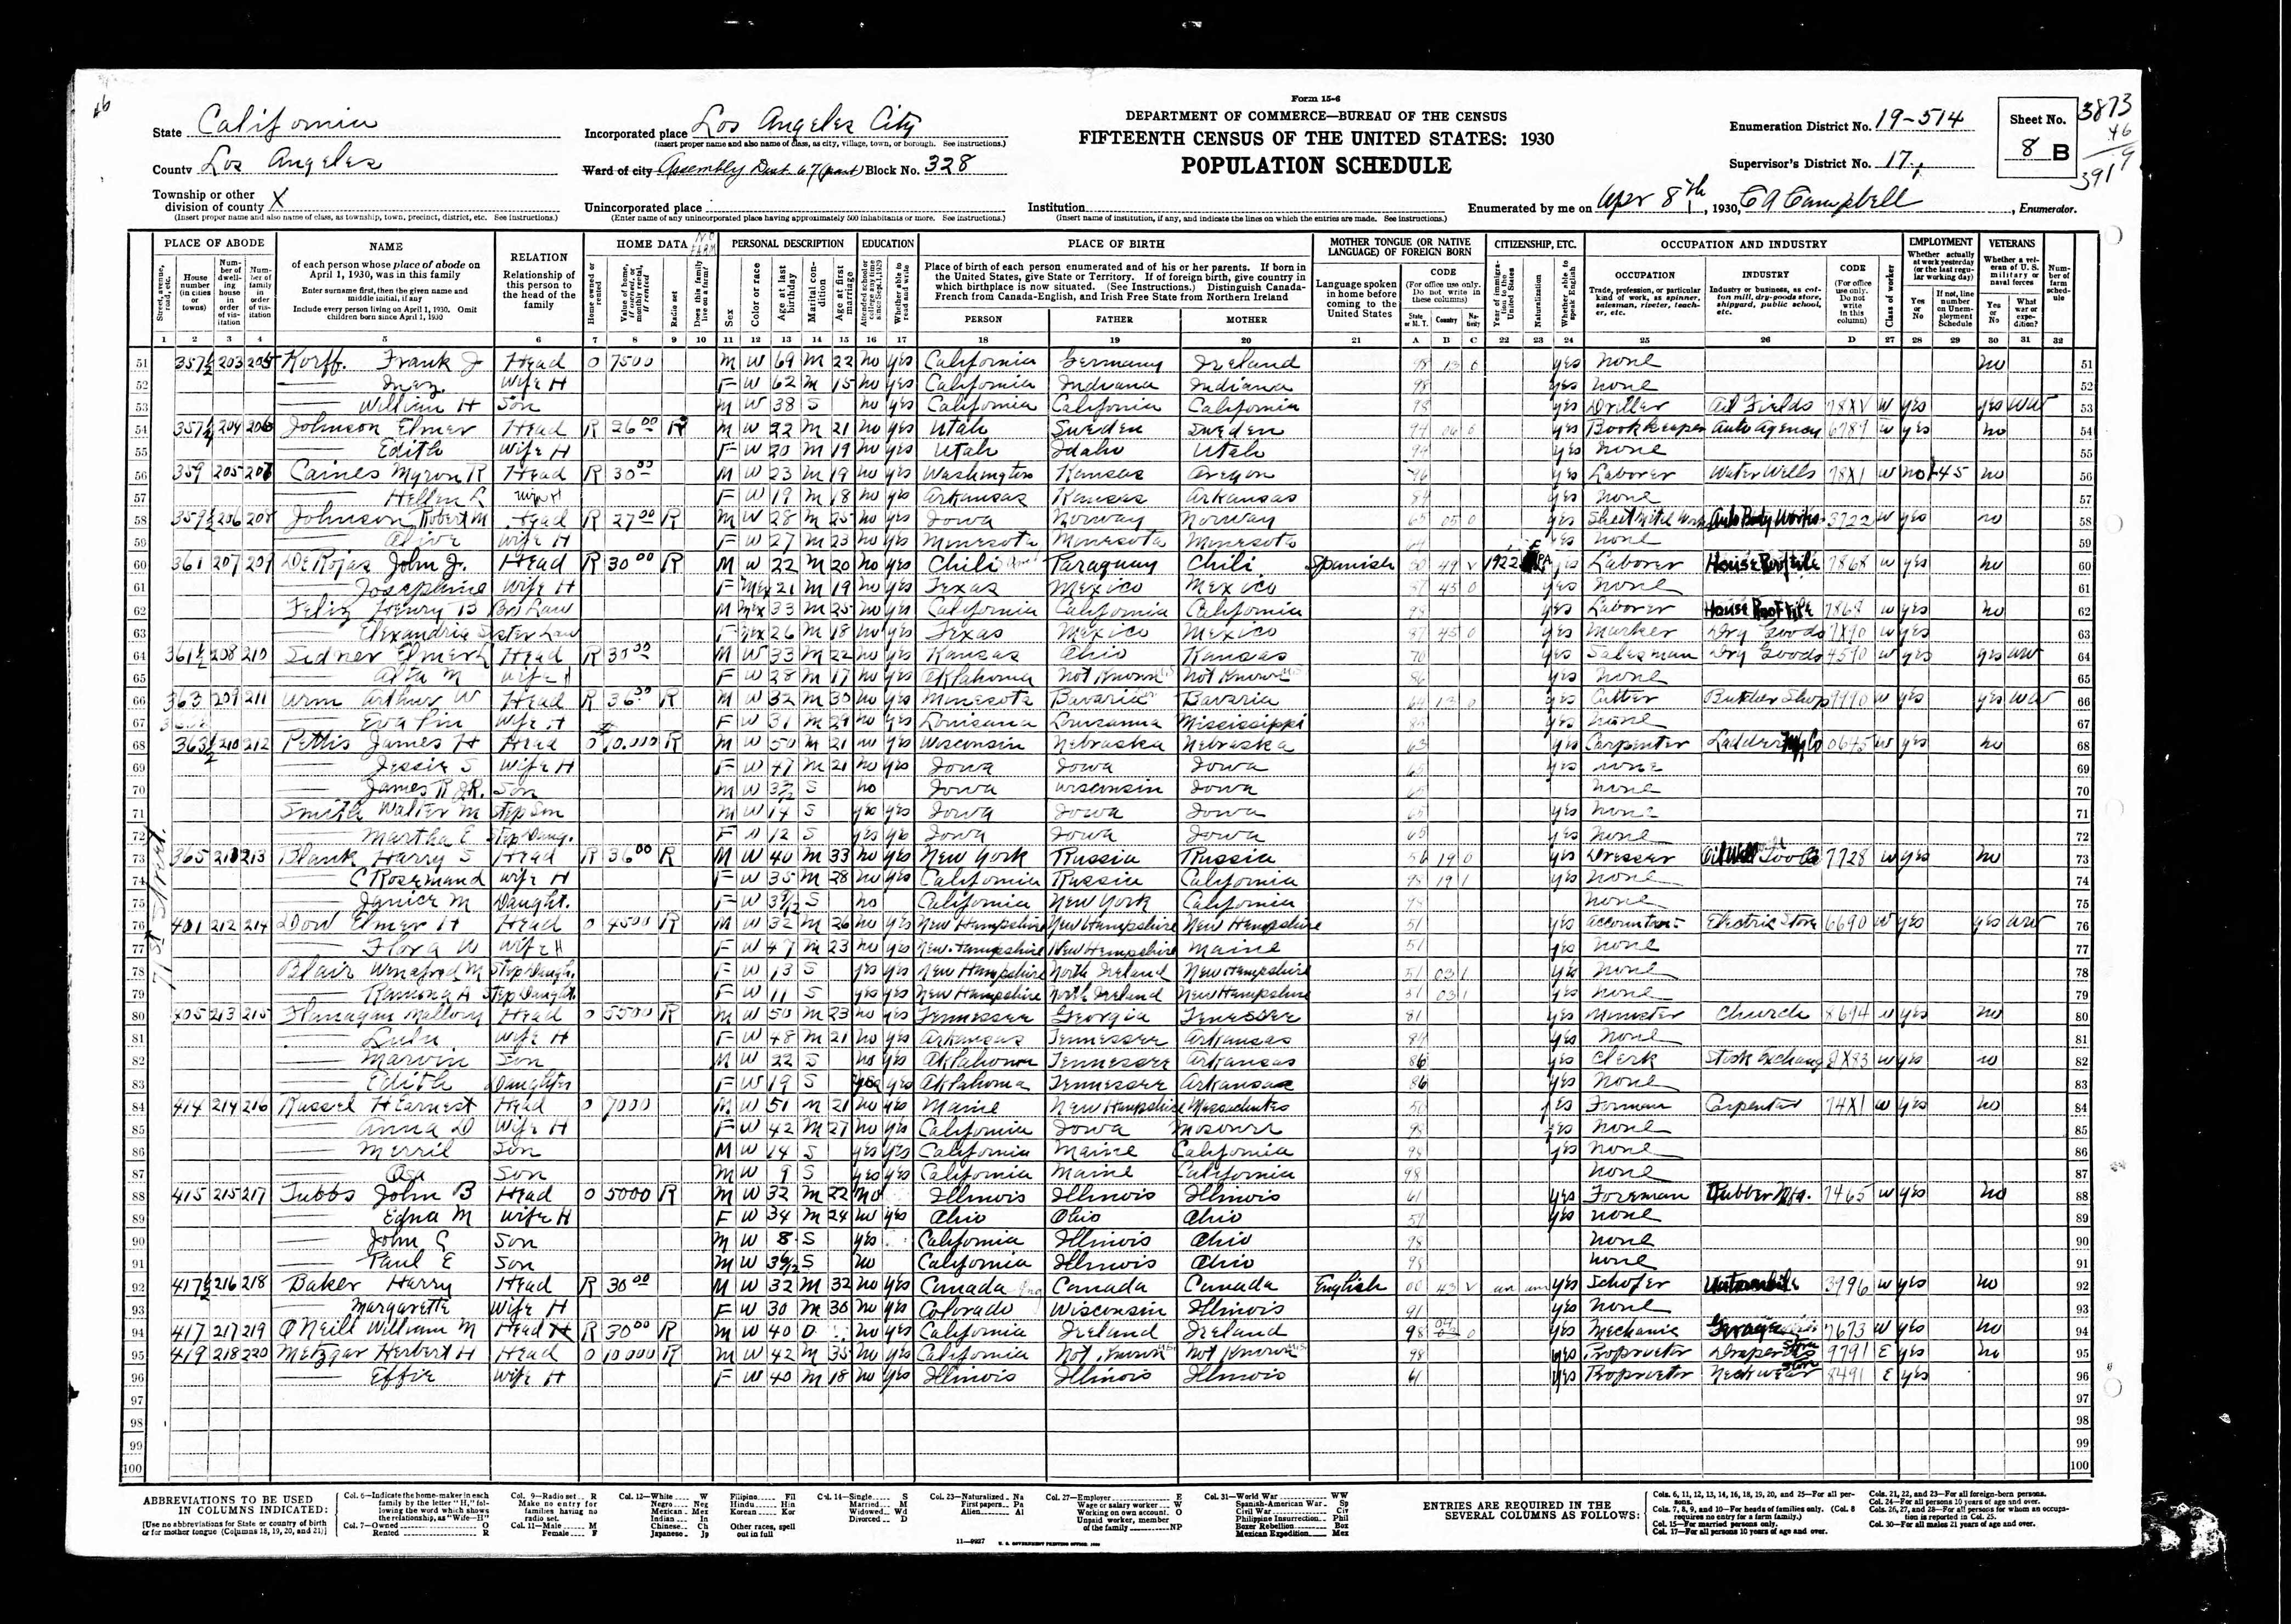 Form 15-6
DEPARTMENT OF COMMERCE—BUREAU OF THE CENSUS
FIFTEENTH CENSUS OF THE UNITED STATES: 1930
POPULATION SCHEDULE
State California
County Los Angeles
Township or other division of county X
(Insert proper name and also name of class, as township, town, precinct, district, etc. See instructions.)
Incorporated place Los Angeles City
(Insert proper name and also name of class, as city, village, town, or borough. See instructions.)
Ward of city Assembly Dist 67 (part) Block No. 328
Unincorporated place
(Enter name of any unincorporated place having approximately 500 inhabitants or more. See instructions.)
Institution
(Insert name of institution, if any, and indicate the lines on which the entries are made. See instructions.)
Enumeration District No. 19-514
Supervisor's District No. 17
Sheet No. 8 B
3873
46
3919
Enumerated by me on Apr 8th, 1930, C A Campbell, Enumerator.
PLACE OF ABODE NAME RELATION HOME DATA PERSONAL DESCRIPTION EDUCATION PLACE OF BIRTH MOTHER TONGUE (OR NATIVE LANGUAGE) OF FOREIGN BORN CITIZENSHIP, ETC. OCCUPATION AND INDUSTRY EMPLOYMENT VETERANS
of each person whose place of abode on April 1, 1930, was in this family
Enter surname first, then the given name and middle initial, if any
Include every person living on April 1, 1930. Omit children born since April 1, 1930
Relationship of this person to the head of the family
Place of birth of each person enumerated and of his or her parents. If born in the United States, give State or Territory. If of foreign birth, give country in which birthplace is now situated. (See Instructions.) Distinguish Canada-French from Canada-English, and Irish Free State from Northern Ireland
PERSON FATHER MOTHER
71st Street
51 357½ 203 205 Korff Frank J Head O 7500 M W 69 M 22 no yes California Germany Ireland 98 13 0 yes none no 51
52 Inez Wife H F W 62 M 15 no yes California Indiana Indiana 98 yes none 52
53 William H Son M W 38 S no yes California California California 98 yes Driller Oil Fields 78XV W yes yes WW 53
54 357¼ 204 206 Johnson Elmer Head R 26 00 R M W 22 M 21 no yes Utah Sweden Sweden 94 yes Bookkeeper Auto Agency 6787 W yes no 54
55 Edith Wife H F W 20 M 19 no yes Utah Idaho Utah 94 yes none 55
56 359 205 207 Caines Myron R Head R 30 00 M W 23 M 19 no yes Washington Kansas Oregon 96 yes Laborer Water Wells 78X1 W no 45 no 56
57 Hellen L Wife H F W 19 M 18 no yes Arkansas Kansas Arkansas 84 yes none 57
58 359½ 206 208 Johnson Robert M Head R 27 00 R M W 28 M 25 no yes Iowa Norway Norway 65 05 0 yes Sheet Metal Work Auto Body Works 3722 W yes no 58
59 Olive Wife H F W 27 M 23 no yes Minnesota Minnesota Minnesota 64 yes none 59
60 361 207 209 De Rojas John J. Head R 30 00 R M W 22 M 20 no yes Chili Paraguay Chili Spanish 49 V 1922 PA yes Laborer House Roof tile 7868 W yes no 60
61 Josephine Wife H F Mex 21 M 19 no yes Texas Mexico Mexico 87 45 0 yes none 61
62 Feliz Henry B Bro Law M Mex 33 M 25 no yes California California California 98 yes Laborer House Roof tile 7868 W yes no 62
63 Elexandria Sister Law F Mex 26 M 18 no yes Texas Mexico Mexico 87 45 0 yes Marker Dry Goods 7890 W yes 63
64 361½ 208 210 Sidner Elmer L Head R 30 00 M W 33 M 22 no yes Kansas Ohio Kansas 70 yes Salesman Dry Goods 4590 W yes yes WW 64
65 Alta M Wife H F W 28 M 17 no yes Oklahoma Not Known Not Known 86 yes none 65
66 363 209 211 Urm Arthur W Head R 36 00 R M W 32 M 30 no yes Minnesota Bavaria Bavaria 64 13 0 yes Cutter Butcher Shop 9990 W yes yes WW 66
67 Eva Wife H F W 31 M 29 no yes Louisana Louisanna Mississippi 85 yes none 67
68 363½ 210 212 Pettis James H Head O 10,000 R M W 50 M 21 no yes Wisconsin Nebraska Nebraska 63 yes Carpenter Ladder Mfg Co 0645 W yes no 68
69 Jessie S Wife H F W 47 M 21 no yes Iowa Iowa Iowa 65 yes none 69
70 James R JR. Son M W S no Iowa Wisconsin Iowa 65 none 70
71 Smith Walter M Step Son M W 14 S yes yes Iowa Iowa Iowa 65 yes none 71
72 Martha E Step Daug. F W 12 S yes yes Iowa Iowa Iowa 65 yes none 72
73 365 211 213 Blank Harry S Head R 36 00 R M W 40 M 33 no yes New York Russia Russia 56 19 0 yes Dresser Oil Well Tools 7728 W yes no 73
74 C Rosemand Wife H F W 35 M 28 no yes California Russia California 98 19 1 yes none 74
75 Janice M Daught. F W S no California New York California 98 none 75
76 401 212 214 Dow Elmer H Head O 4500 R M W 32 M 26 no yes New Hampshire New Hampshire New Hampshire 51 yes Accountant Electric Store 6690 W yes yes WW 76
77 Flora W Wife H F W 47 M 23 no yes New Hampshire New Hampshire Maine 51 yes none 77
78 Blair Winafred M Step Daugh. F W 13 S yes yes New Hampshire North Ireland New Hampshire 51 03 1 yes none 78
79 Ramona A Step Daught. F W 11 S yes yes New Hampshire North Ireland New Hampshire 51 03 1 yes none 79
80 405 213 215 Flanagan Mallory Head O 5500 R M W 50 M 23 no yes Tennessee Georgia Tenessee 81 yes Minister Church 8694 W yes no 80
81 Lulu Wife H F W 48 M 21 no yes Arkansas Tennessee Arkansas 84 yes none 81
82 Marvin Son M W 22 S no yes Oklahoma Tennessee Arkansas 86 yes Clerk Stock Exchang 8X83 W yes no 82
83 Edith Daughter F W 19 S yes yes Oklahoma Tennessee Arkansas 86 yes none 83
84 414 214 216 Russel H Earnest Head O 7000 M W 51 M 21 no yes Maine New Hampshire Massachutes 50 yes Forman Carpenter 74X1 W yes no 84
85 Anna D Wife H F W 42 M 27 no yes California Iowa Misourr 98 yes none 85
86 Merril Son M W 14 S yes yes California Maine California 98 yes none 86
87 Asa Son M W 9 S yes yes California Maine California 98 none 87
88 415 215 217 Tubbs John B Head O 5000 R M W 32 M 22 no Illinois Illinois Illinois 61 yes Foreman Rubber Mfg. 7465 W yes no 88
89 Edna M Wife H F W 34 M 24 no yes Ohio Ohio Ohio 59 yes none 89
90 John C Son M W 8 S yes California Illinois Ohio 98 none 90
91 Paul E Son M W S no California Illinois Ohio 98 none 91
92 417½ 216 218 Baker Harry Head R 30 00 M W 32 M 32 no yes Canada Canada Canada English 00 43 V un un yes Schofer Automobile 3996 W yes no 92
93 Margarette Wife H F W 30 M 30 no yes Colorado Wisconsin Illinois 91 yes none 93
94 417 217 219 O'Neill William M Head H R 30 00 R M W 40 D no yes California Ireland Ireland 98 0 yes Mechanic Garage 7673 W yes no 94
95 419 218 220 Metzgar Herbert H Head O 10000 R M W 42 M 35 no yes California Not Known Not Known 98 yes Proprietor Store 9791 E yes no 95
96 Effie Wife H F W 40 M 18 no yes Illinois Illinois Illinois 61 yes Proprietor Neckwear Store 8491 E yes 96
97 97
98 98
99 99
100 100
ABBREVIATIONS TO BE USED IN COLUMNS INDICATED:
[Use no abbreviations for State or country of birth or for mother tongue (Columns 18, 19, 20, and 21)]
Col. 6—Indicate the home-maker in each family by the letter "H," following the word which shows the relationship, as "Wife—H"
Col. 7—Owned O
Rented R
Col. 9—Radio set R
Make no entry for families having no radio set.
Col. 11—Male M
Female F
Col. 12—White W
Negro Neg
Mexican Mex
Indian In
Chinese Ch
Japanese Jp
Filipino Fil
Hindu Hin
Korean Kor
Other races, spell out in full
Col. 14—Single S
Married M
Widowed Wd
Divorced D
Col. 23—Naturalized Na
First papers Pa
Alien Al
Col. 27—Employer E
Wage or salary worker W
Working on own account O
Unpaid worker, member of the family NP
Col. 31—World War WW
Spanish-American War Sp
Civil War Civ
Philippine Insurrection Phil
Boxer Rebellion Box
Mexican Expedition Mex
ENTRIES ARE REQUIRED IN THE SEVERAL COLUMNS AS FOLLOWS:
Cols. 6, 11, 12, 13, 14, 16, 18, 19, 20, and 25—For all persons.
Cols. 7, 8, 9, and 10—For heads of families only. (Col. 8 requires no entry for a farm family.)
Col. 15—For married persons only.
Col. 17—For all persons 10 years of age and over.
Cols. 21, 22, and 23—For all foreign-born persons.
Col. 24—For all persons 10 years of age and over.
Cols. 26, 27, and 28—For all persons for whom an occupation is reported in Col. 25.
Col. 30—For all males 21 years of age and over.
11—9927 U. S. GOVERNMENT PRINTING OFFICE: 1930